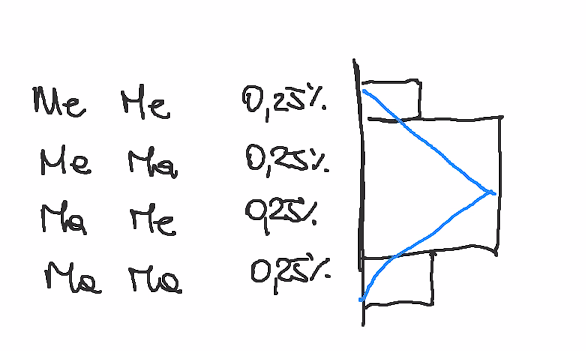 Me Me 0,25%
Me Ma 0,25%
Ma Me 0,25%
Ma Ma 0,25%